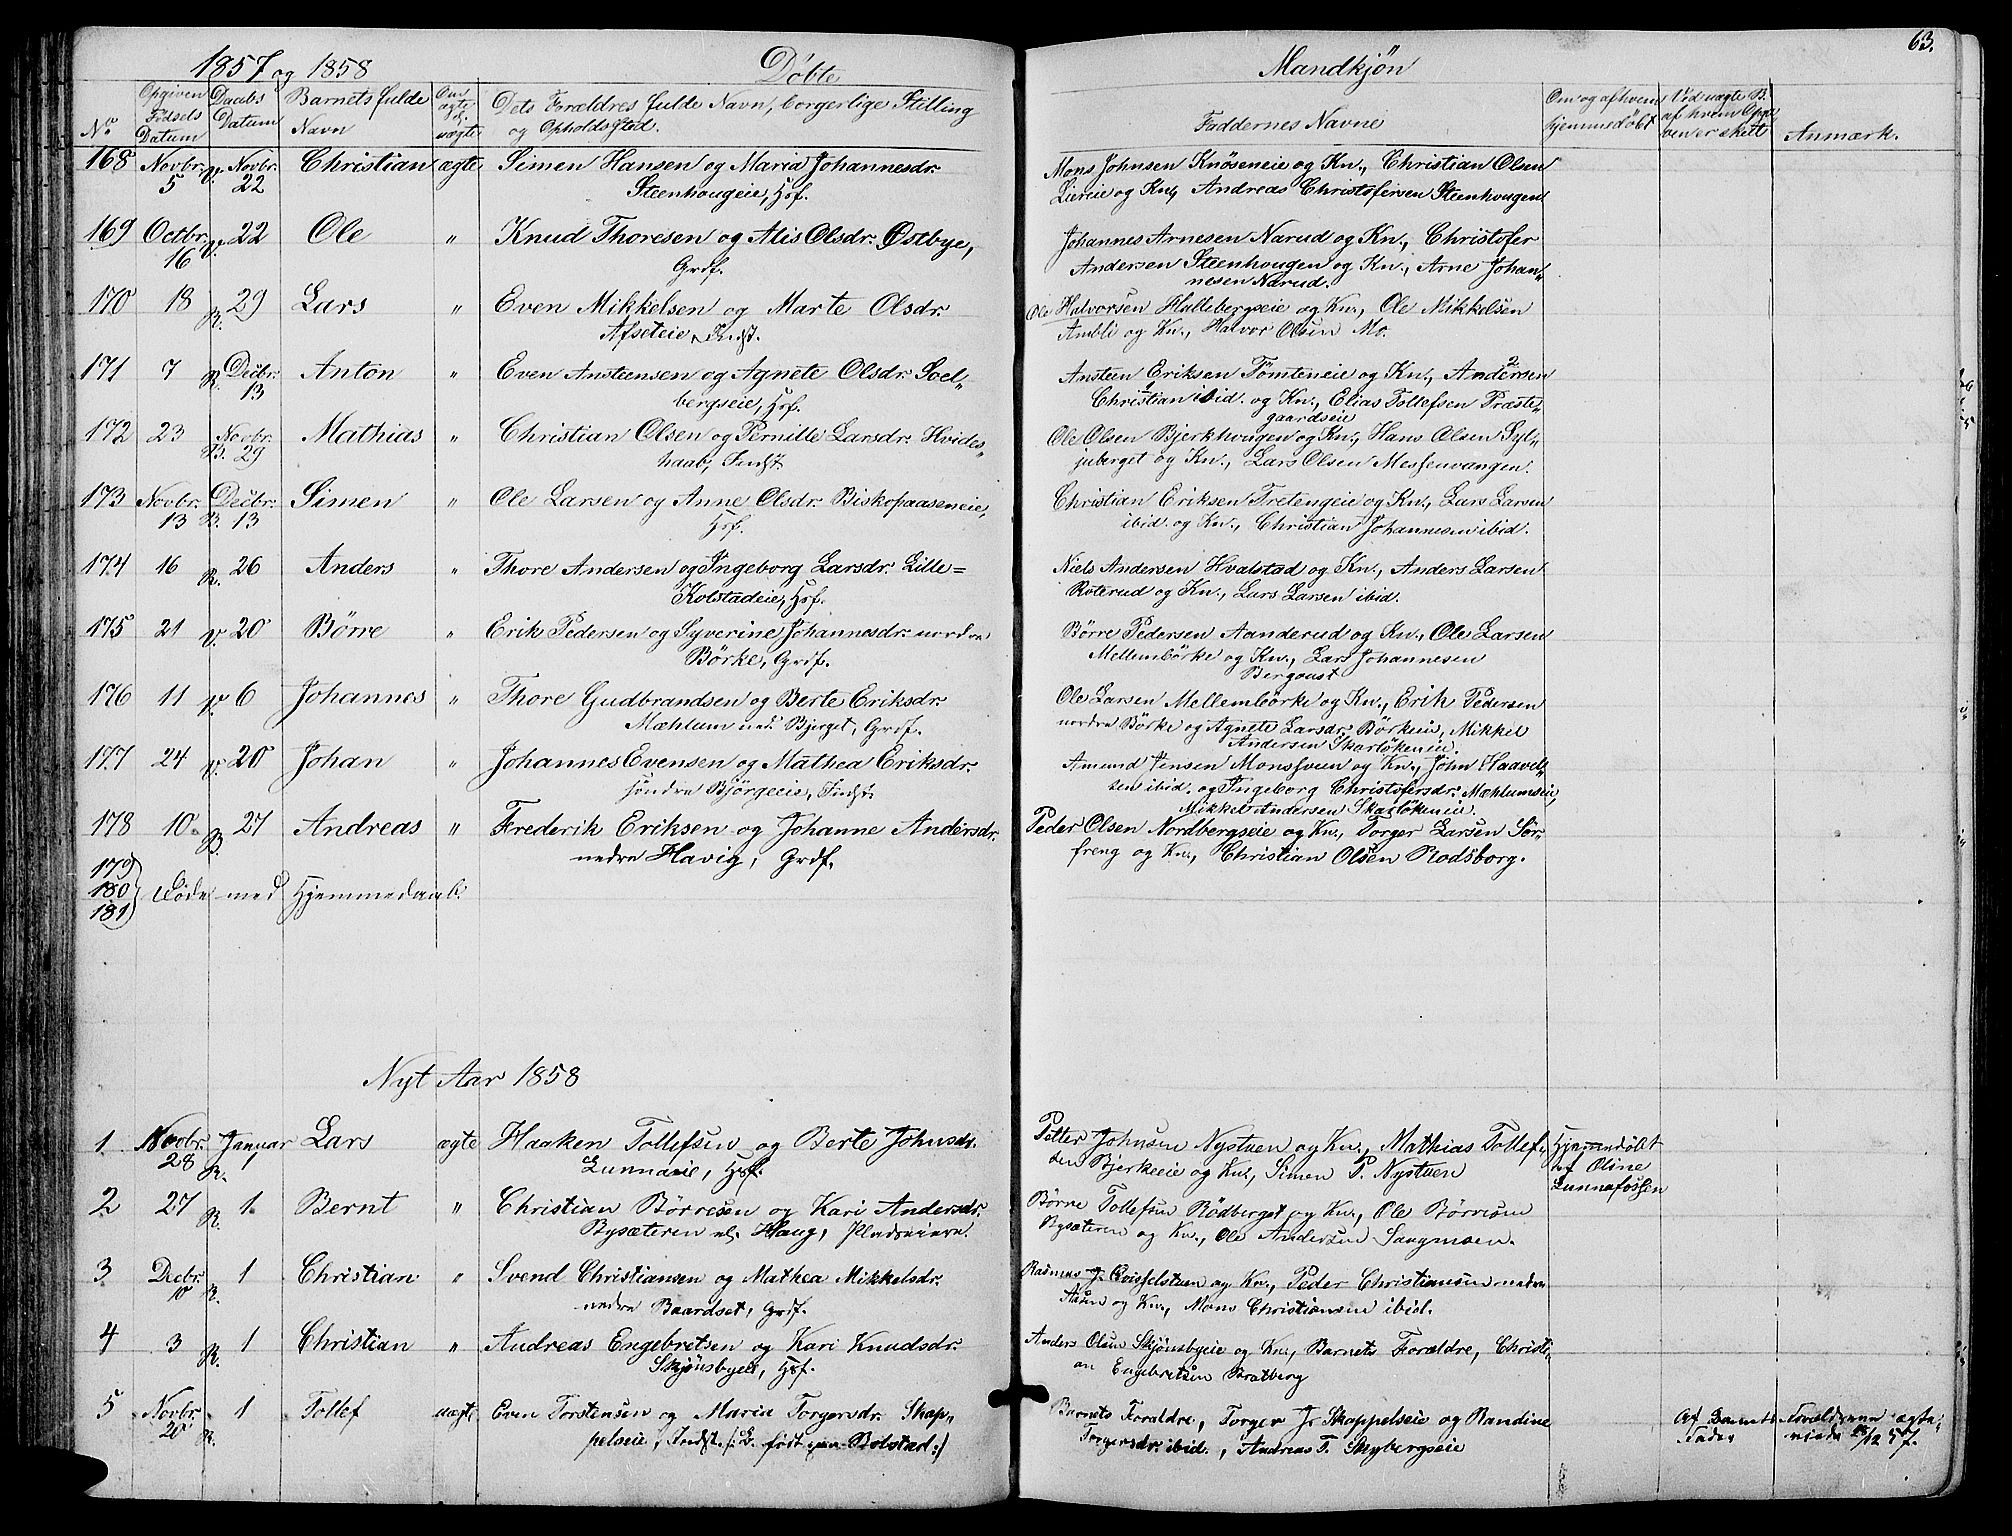 1857 og 1858 Döbte
No Opgiven Födsels Datum Daabs Datum Barnets fulde Navn Om ægte el. uægte Dets Forældres fulde Navn, borgerlige Stilling og Opholdssted.
168 Novbr. 5 V. Novbr. 22 Christian ægte Simen Hansen og Maria Johannesdr.
Steenhougeie, Hsf.
169 Octbr. 16 V. 22 Ole " Knud Thoresen og Alis Olsdr. Østbye,
Grdf.
170 18 R. 29 Lars " Even Mikkelsen og Marte Olsdr.
Afseteie, Indst.
171 7 R. Decbr. 13 Anton " Even Ansteensen og Agnete Olsdr. Soel„
bergseie, Hsf.
172 23 B. Novbr. 29 Mathias " Christian Olsen og Pernille Larsdr. Hvides„
haab, Indst
173 Novbr. 13 B. Decbr. 13 Simen " Ole Larsen og Anne Olsdr. Biskopaaseneie,
Hsf.
174 16 R. 26 Anders " Thore Andersen og Ingeborg Larsdr. Lille=
Kolstadeie, Hsf.
175 21 V. 20 Börre " Erik Pedersen og Syverine Johannesdr. nordre
Börke, Grdf.
176 11 V. 6 Johannes " Thore Gudbrandsen og Berte Eriksdr.
Mæhlum Bjerget, Grdf.
177 24 V. 20 Johan " Johannes Evensen og Mathea Eriksdr.
söndre Björgeeie, Indst
178 10 B. 27 Andreas " Frederik Eriksen og Johanne Andersdr.
nedre Havig, Grdf.
179
180 Döde med Hjemmedaab.
181
Nyt Aar 1858
1 Novbr. 28 R. Januar 1 Lars ægte Haaken Tollefsen og Berte Johnsdr.
Lunnaeie, Hsf.
2 27 R. 1 Bernt " Christian Börresen og Kari Andersdr.
Bysæteren Haug, Pladseiere.
3 Decbr. 10 R. 1 Christian " Svend Christiansen og Mathea Mikkelsdr.
nedre Baardset, Grdf.
4 3 R. 1 Christian " Andreas Engebretsen og Kari Knudsdr.
Skjönsbyeie, Hsf.
5 Novbr. 20 R. 1 Tollef uægte Even Torstensen og Maria Torgersdr. Skap„
pelseie, Indst. /: B. født paa Bolstad :/
Mandkjön 63.
Faddernes Navne Om og af hvem hjemmedöbt Ved uægte B. af hvem Opgaven er skeet Anmærk.
Mons Johnsen Knöseneie og Kn., Christian Olsen
Liereie og Kn., Andreas Christofersen Steenhougen
Johannes Arnesen Narud og Kn., Christofer
Andersen Steenhougen og Kn., Arne Johan„
nesen Narud.
Ole Halvorsen Hallebergseie og Kn., Ole Mikkelsen
Ambli og Kn., Halvor Olsen Mo.
Ansteen Eriksen Tömteneie og Kn., Andersen 2
Christian 1 ibid. og Kn., Elias Tollefsen Præste„
gaardseie
Ole Olsen Bjerkhougen og Kn., Hans Olsen Syl„
juberget og Kn., Lars Olsen Messenvangen.
Christian Eriksen Tretengeie og Kn., Lars Larsen
ibid. og Kn., Christian Johannesen ibid.
Niels Andersen Hvalstad og Kn., Anders Larsen
Roterud og Kn., Lars Larsen ibid.
Börre Pedersen Aanderud og Kn., Ole Larsen
Mellembörke og Kn., Lars Johannesen
Bergoust
Ole Larsen Mellembörke og Kn., Erik Pedersen
nordre Börke og Agnete Larsdr. Börkeeie, Mikkel
Andersen Skarlökeneie.
Amund Jensen Monssveen og Kn., John Haavel„
sen ibid. og Ingeborg Christofersdr. Mæhlumseie,
Mikkel Andersen Skarlökeneie.
Peder Olsen Nordbergseie og Kn., Torger Larsen Sör„
freng og Kn., Christian Olsen Rodsborg.
Petter Johnsen Nystuen og Kn., Mathias Tollef„ Hjemmedöbt
sen Bjerkeeie og Kn., Simen P. Nystuen af Oline
Lunnafossen
Börre Tollefsen Rödberget og Kn., Ole Börresen
Bysæteren og Kn., Ole Andersen Saugmoen.
Rasmus J. Qvisselstuen og Kn., Peder Christiansen nedre
Aasen og Kn., Mons Christiansen ibid.
Anders Olsen Skjönsbyeie og Kn., Barnets Forældre, Christi„
an Engebretsen Bratberg
Barnets Forældre, Torger J. Skappelseie og Randine Af Barnets Forældrene ægte„
Torgersdr. ibid., Andreas T. Skybergseie Fader viede /12 57.